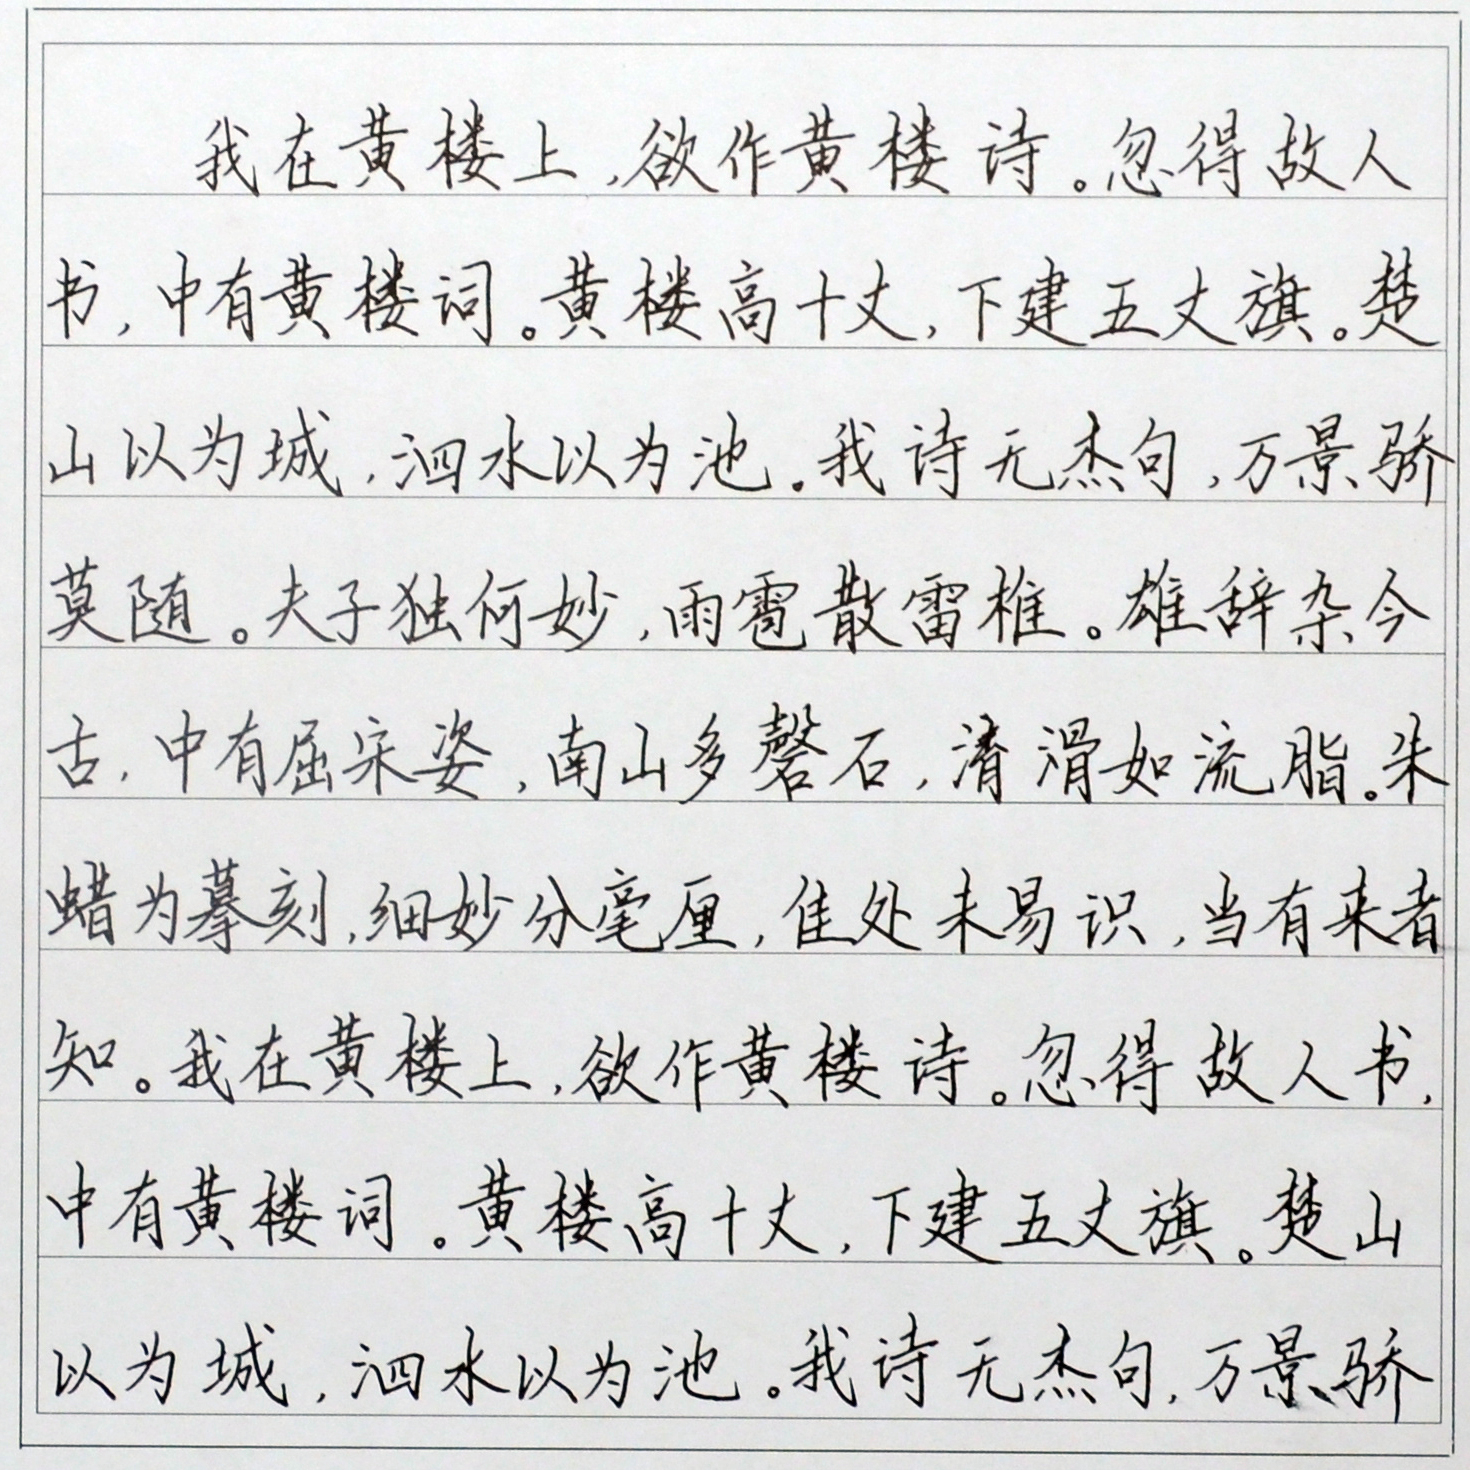 我在黄楼上,欲作黄楼诗。忽得故人
书,中有黄楼词。黄楼高十丈,下建五丈旗。楚
山以为城,泗水以为池。我诗无杰句,万景骄
莫随。夫子独何妙,雨雹散雷椎。雄辞杂今
古,中有屈宋姿,南山多磬石,清滑如流脂。朱
蜡为摹刻,细妙分毫厘,佳处未易识,当有来者
知。我在黄楼上,欲作黄楼诗。忽得故人书,
中有黄楼词。黄楼高十丈,下建五丈旗。楚山
以为城,泗水以为池。我诗无杰句,万景骄